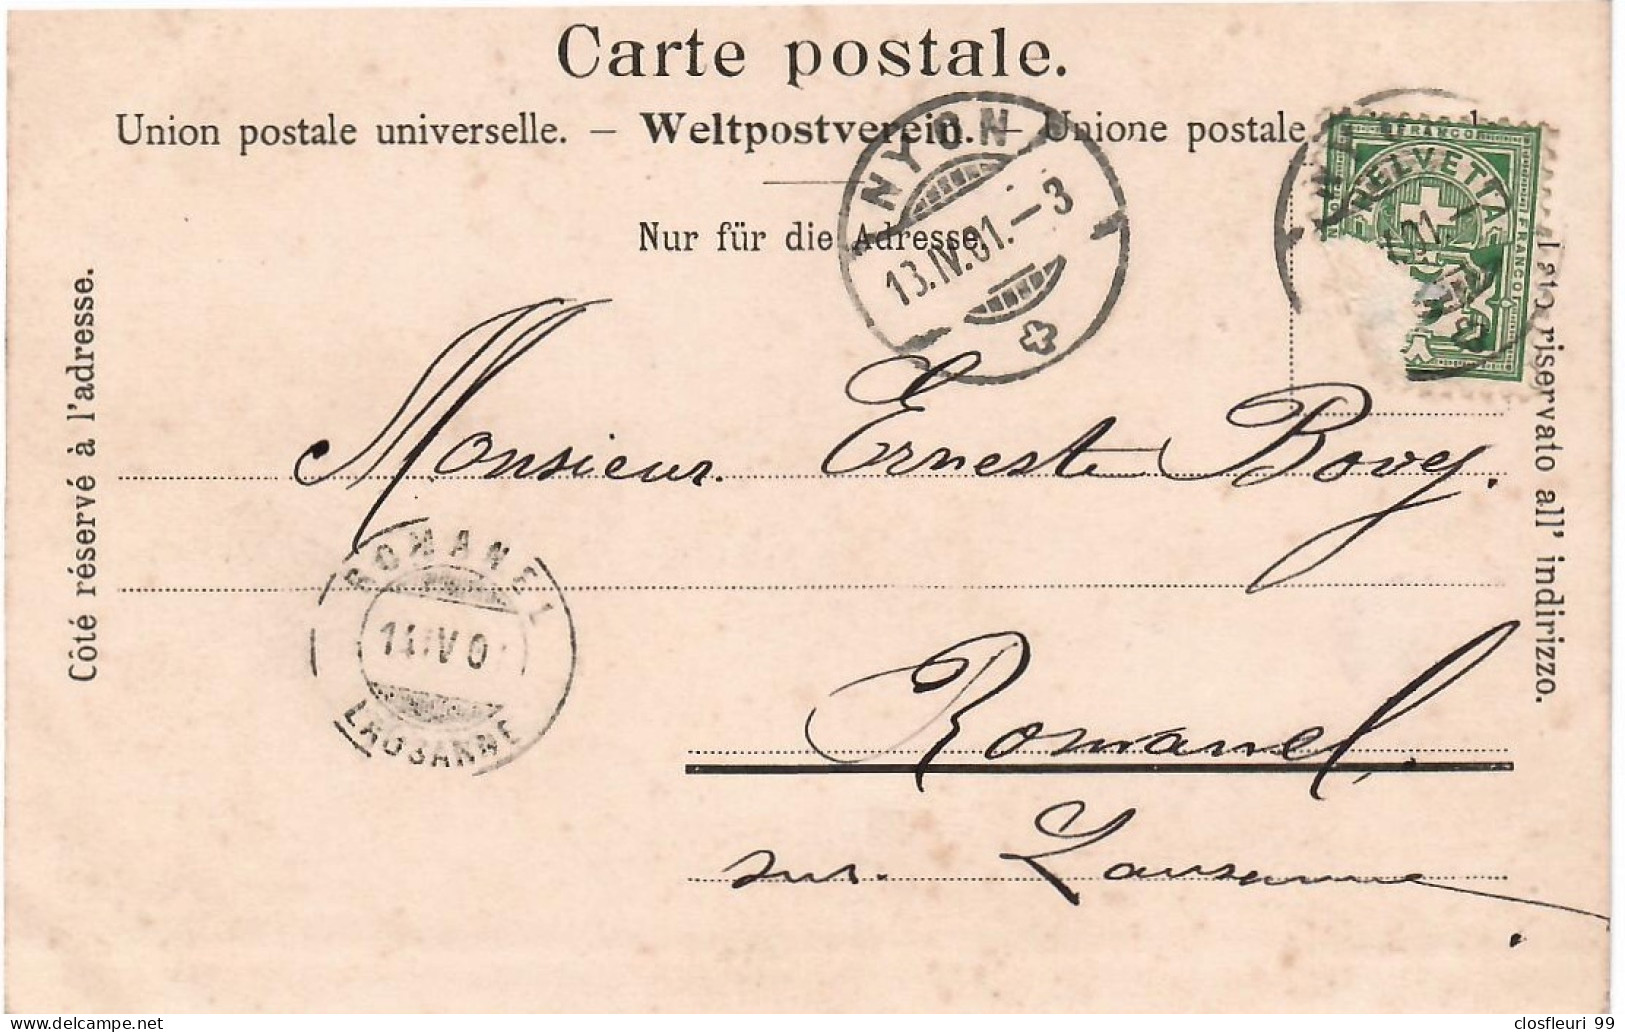 Carte postale.
Union postale universelle. — Weltpostverein. — Unione postale
Nur für die Adresse.
Côté réservé à l'adresse.
Lato riservato all' indirizzo.
NYON
13.IV.01.–3
FRANCO
HELVETIA
FRANCO
Monsieur Ernest Bovey.
ROMANEL
14.IV.0
LAUSANNE
Romanel,
sur. Lausanne.
closfleuri 99